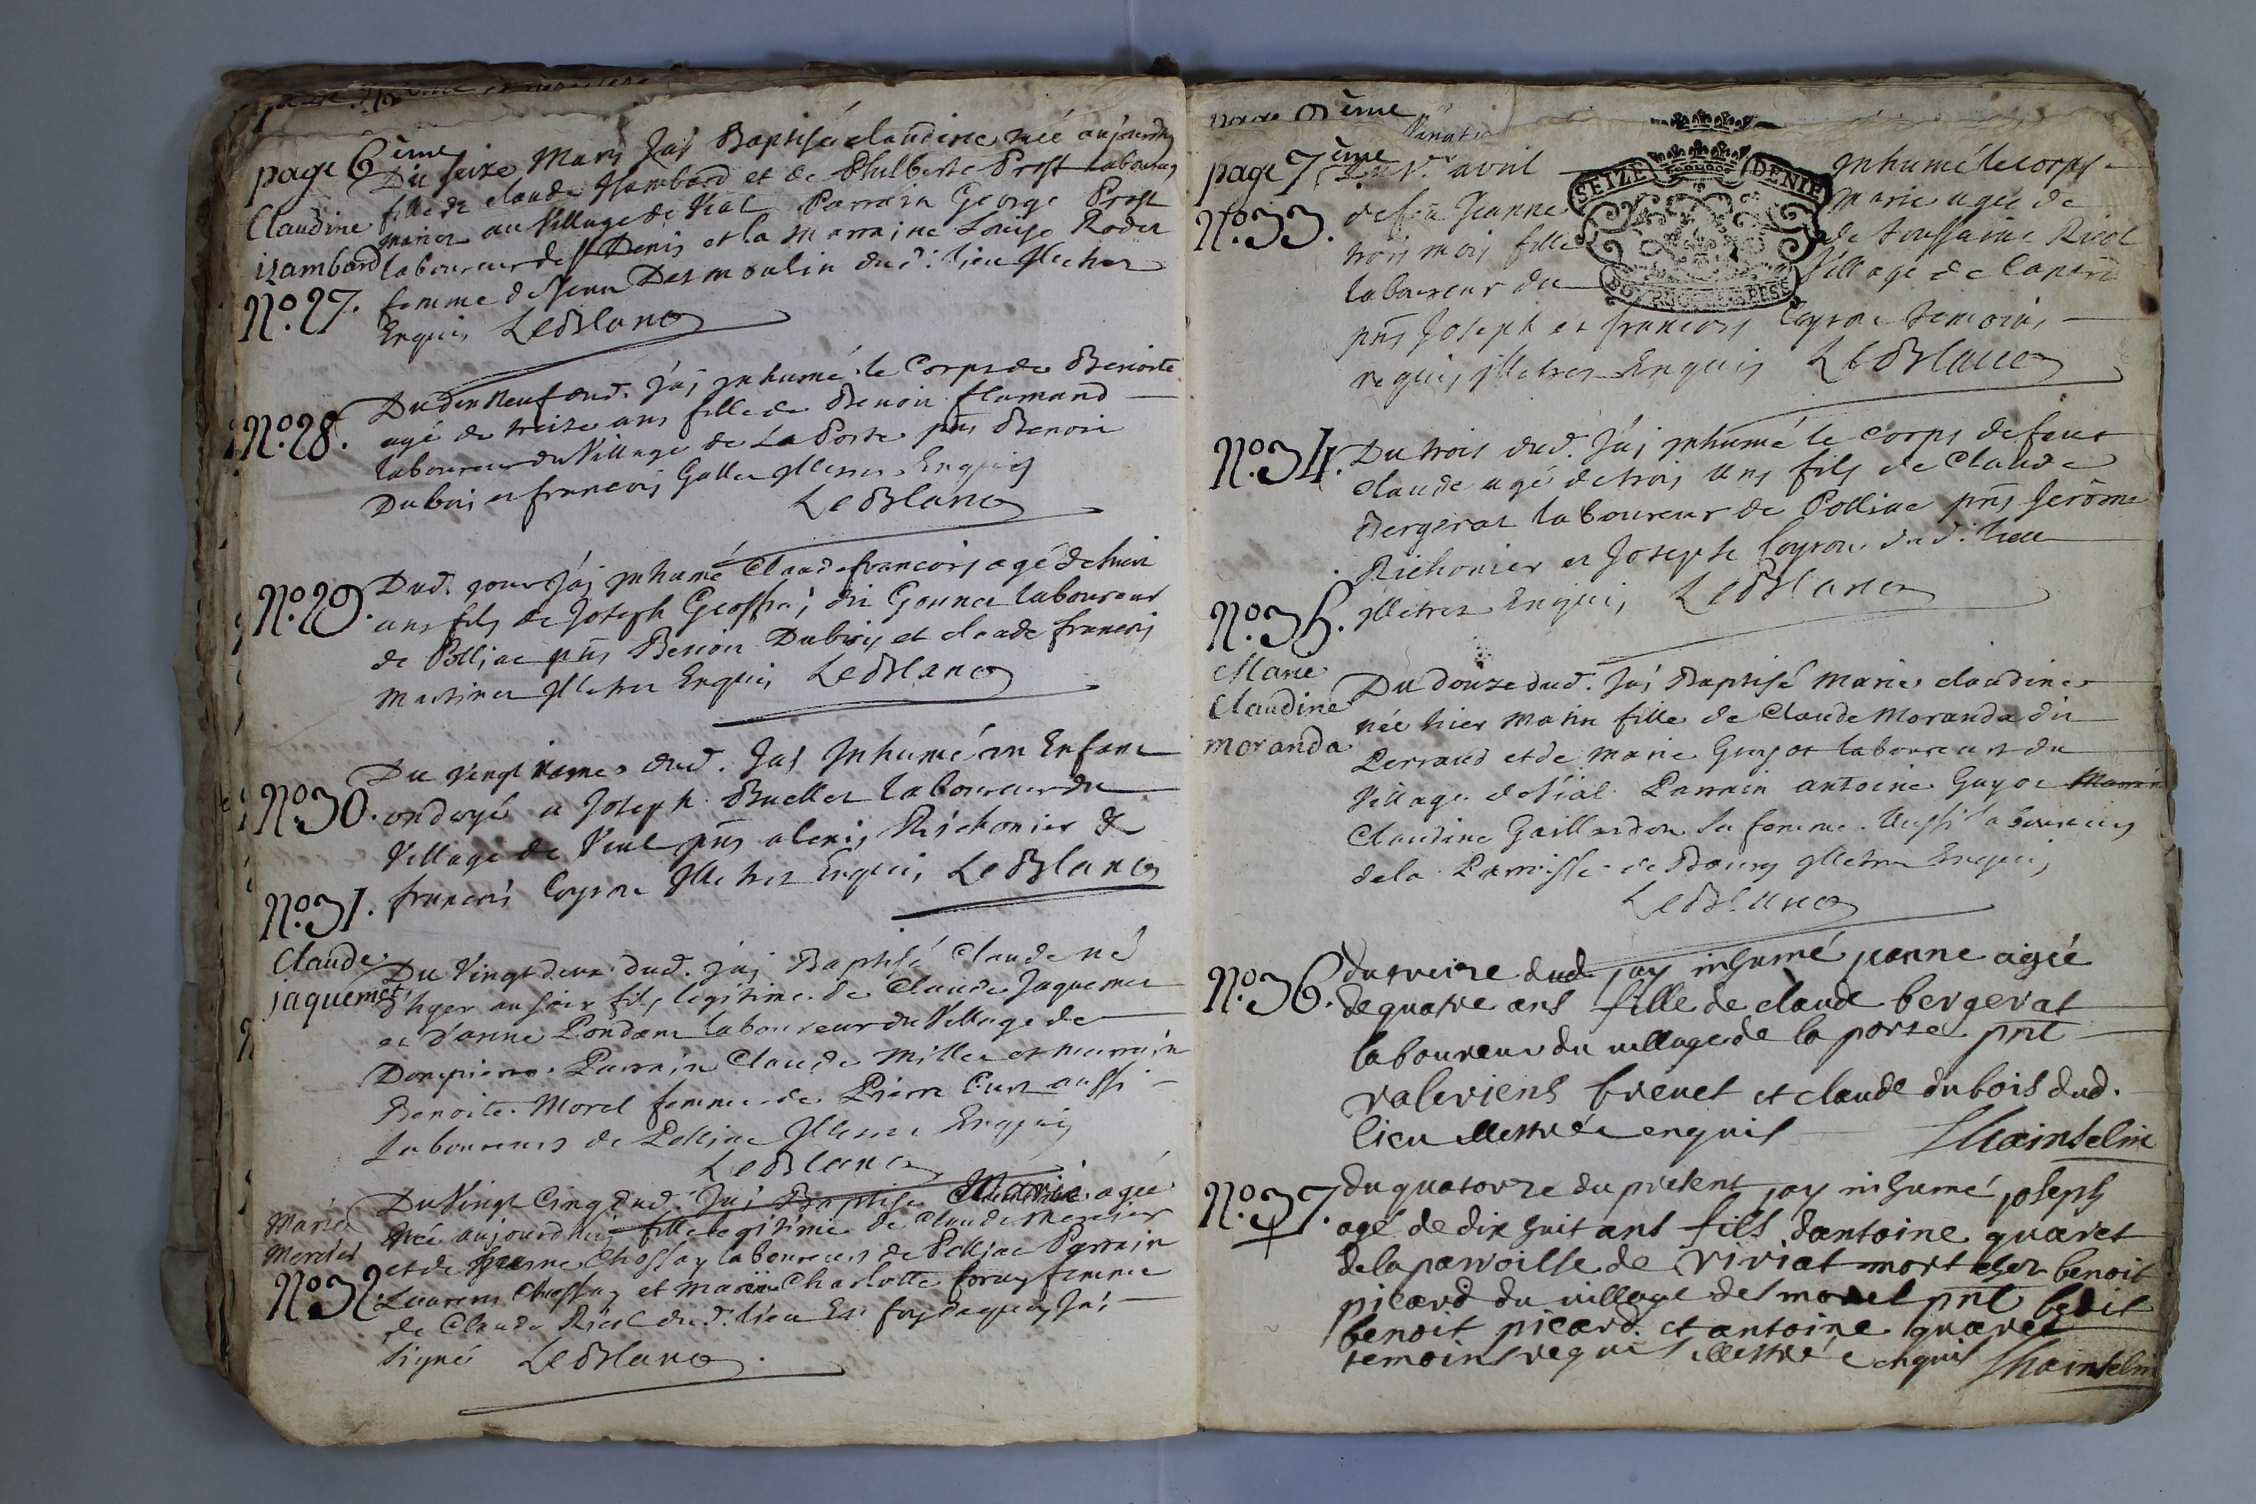 page 6ème
Du seize Mars Jaÿ Baptisé claudine née aujourdhuy
Claudine fille de claude Isambard et de Philberte Prost laboureur
au Village de Vial Parrain George Prost
izambard laboureur de St Denis et la Marraine Louise Rodet
No. 27. femme de Jean Desmoulin dud. lieu Illetrez
Enquis LeBlanc
No. 28. Du dix Neuf dud. J'aÿ Inhumé le Corps de Benoite
agé de treize ans fille de Benoit flamand
laboureur du Village de La Poste pñs Benoit
Dubois et francois Gallet Illetrez Enquis
LeBlanc
No. 29. Dud. jour J'aÿ Inhumé Claude francois agé de huit
ans fils de Joseph Geoffraÿ dit Gonnet laboureur
de Polliac pñs Benoit Dubois et claude francois
Martinet Illetrez Enquis LeBlanc
No. 30. Du Vingt dud. Jaÿ Inhumé un Enfant
ondoyé a Joseph Buellet laboureur du
Village de Vial pñs alexis Richonier &
No. 31. francois Coyron Illetrez Enquis LeBlanc
Claude Du Vingt deux dud. J'aÿ Baptisé Claude né
jaquemet hyer au soir fils legitime de Claude Jaquemet
et d'anne Pondam laboureur du Village de
Dompierre Parrain Claude Millet et marraine
Benoite Morel femme de Pierre Curt aussi
laboureurs de Polliac Illetrez Enquis
LeBlanc
Du Vingt Cinq dud. Jaÿ Baptisé Marie agée
Marie Née aujourdhuÿ fille legitime de Claude Mercier
Mercier et de Jeanne Chossaÿ laboureur de Polliac Parrain
No. 32. Laurent Chossaÿ et Marie Charlotte foraÿ femme
de Claude Riol dud. lieu En foy dequoy J'ai
Signé LeBlanc
page 7ème
Du 1er avril Inhumé le corps
No. 33. de feu Jeanne Marie agée de
trois mois fille de toussaint Riol
laboureur du Village de
pñs Joseph et francois Coyron temoins
requis Illetrez Enquis LeBlanc
SEIZE DENIE
No. 34. Du trois dud. J'aÿ Inhumé le corps de feu
claude agé de trois ans fils de Claude
Bergerat laboureur de Polliac pñs Jerôme
Richonier et Joseph Coyron dud. lieu
No. 35. Illetrez Enquis LeBlanc
Marie Du douze dud. J'aÿ Baptisé Marie claudine
Claudine née hier matin fille de Claude Moranda dit
moranda Perraud et de Marie Guyot laboureur du
Village de Vial Parrain antoine Guyot
Claudine Gaillardon sa femme aussi laboureurs
de la Parroisse de Bourg Illetrez Enquis
LeBlanc
No. 36. du treize dud. jay inhumé jeanne agée
de quatre ans fille de claude bergerat
laboureur du village de la poste pnt
valeriens brevet et claude dubois dud.
lieu illettrée enquis Thainselin
No. 37. du quatorze du present jay inhumé joseph
agé de dix huit ans fils dantoine quaret
de la parroisse de viriat mort chez benoit
picard du village des morel pnt ledit
benoit picard et antoine quaret
temoins requis illettrée enquis Thainselin